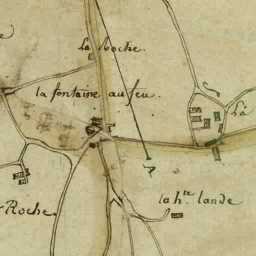 la Roche.
la fontaine au feu.
la h.te lande
Roche.